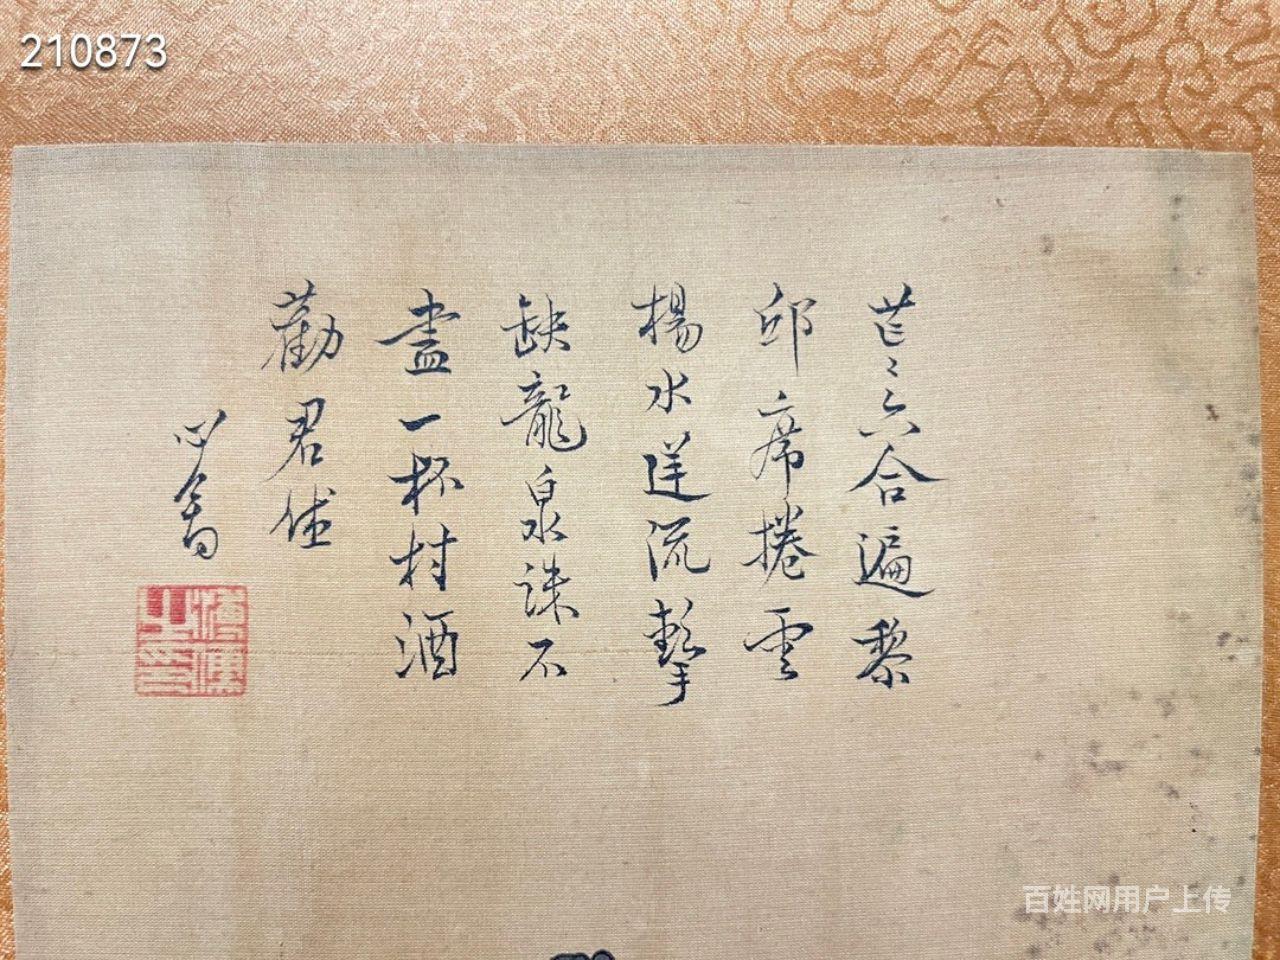 210873
芒〻六合遍黎
邱席捲雲
揚水逆流擊
缺龍泉誅不
盡一杯村酒
勸君休
心畬
溥儒之印
百姓网用户上传